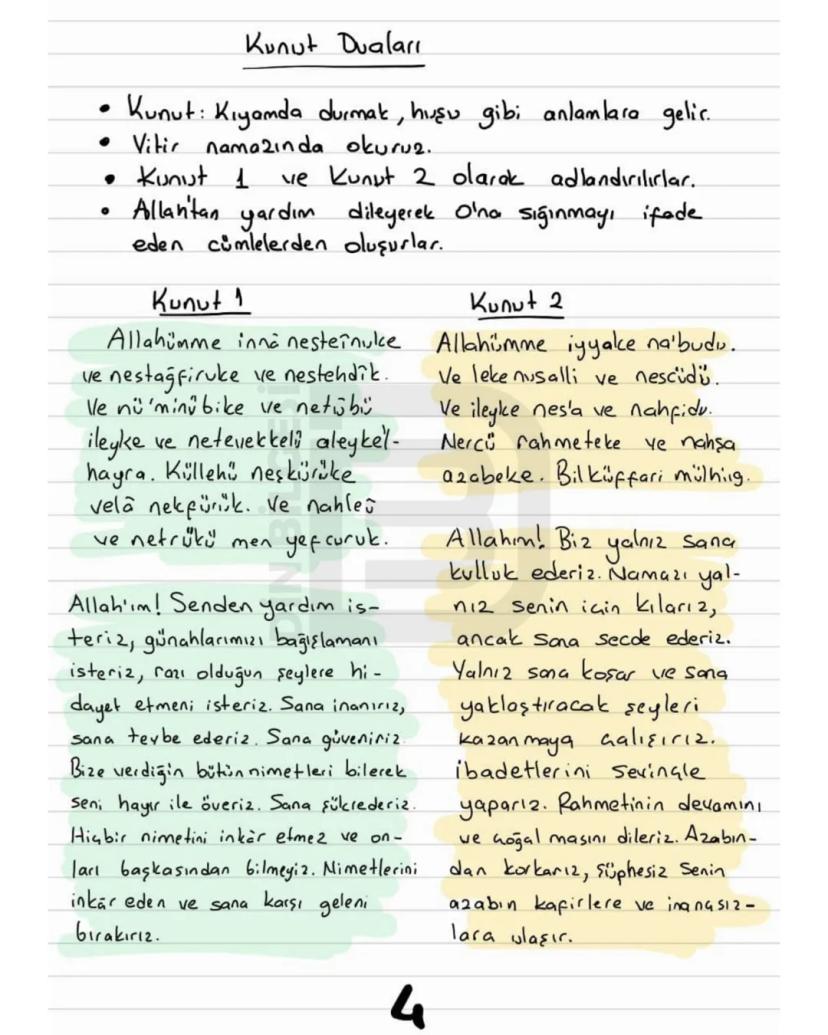 Kunut Duaları
• Kunut: Kıyamda durmak, huşu gibi anlamlara gelir.
• Vitir namazında okuruz.
• Kunut 1 ve Kunut 2 olarak adlandırılırlar.
• Allah'tan yardım dileyerek O'na sığınmayı ifade
eden cümlelerden oluşurlar.
Kunut 1
Allahümme innâ nesteînuke
ve nestağfiruke ve nestehdîk.
Ve nü'minü bike ve netûbü
ileyke ve netevekkelü aleyke'l-
hayra. Küllehü neşkürüke
velâ nekfürük. Ve nahleü
ve netrükü men yefcuruk.
Allah'ım! Senden yardım is-
teriz, günahlarımızı bağışlamanı
isteriz, razı olduğun şeylere hi-
dayet etmeni isteriz. Sana inanırız,
sana tevbe ederiz. Sana güveniriz.
Bize verdiğin bütün nimetleri bilerek
seni hayır ile överiz. Sana şükrederiz.
Hiçbir nimetini inkâr etmez ve on-
ları başkasından bilmeyiz. Nimetlerini
inkâr eden ve sana karşı geleni
bırakırız.
Kunut 2
Allahümme iyyake na'budu.
Ve leke nusalli ve nescüdü.
Ve ileyke nes'a ve nahfidu.
Nercü rahmeteke ve nahşa
azabeke. Bil küffari mülhig.
Allahım! Biz yalnız sana
kulluk ederiz. Namazı yal-
nız senin için kılarız,
ancak sana secde ederiz.
Yalnız sana koşar ve sana
yaklaştıracak şeyleri
kazanmaya çalışırız.
ibadetlerini sevinçle
yaparız. Rahmetinin devamını
ve çoğalmasını dileriz. Azabın-
dan korkarız, şüphesiz Senin
azabın kafirlere ve inançsız-
lara ulaşır.
DİN BİLGESİ
4